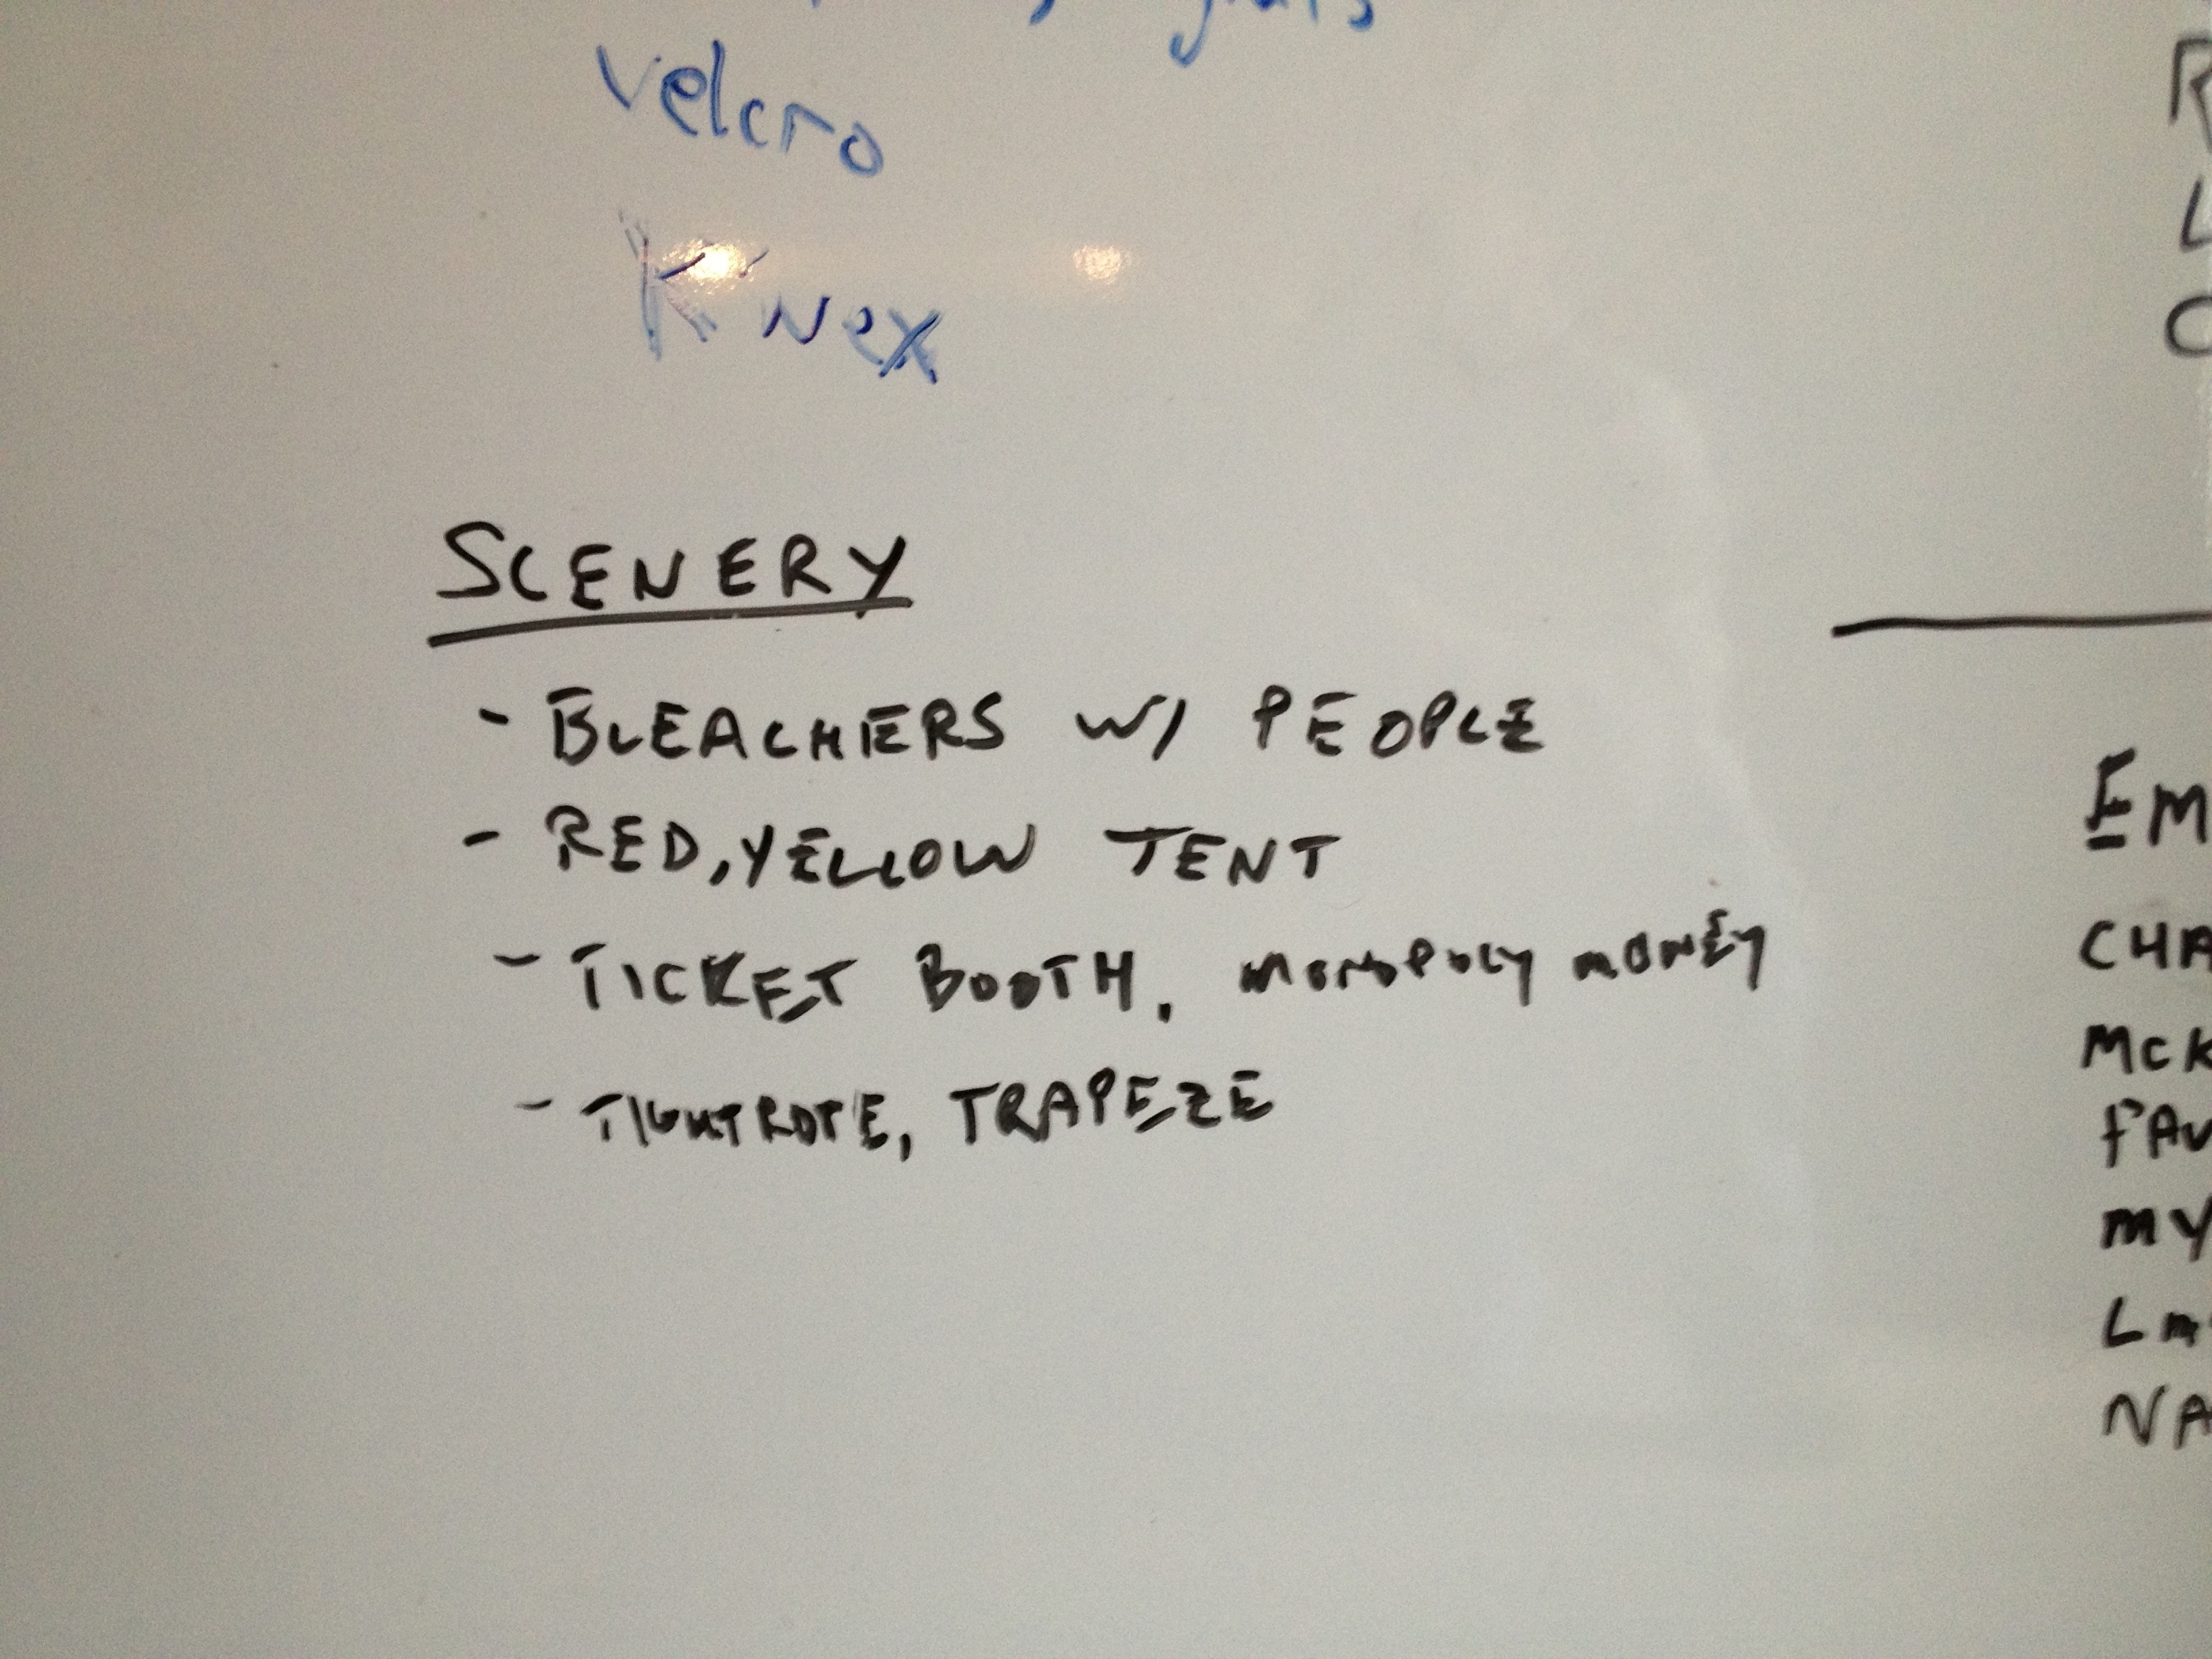 velcro
K'nex
SCENERY
- BLEACHERS W/ PEOPLE
- RED, YELLOW TENT
- TICKET BOOTH, MONOPOLY MONEY
- TIGHTROPE, TRAPEZE
R
L
C
EM
CHA
MCK
FAV
MY
NA